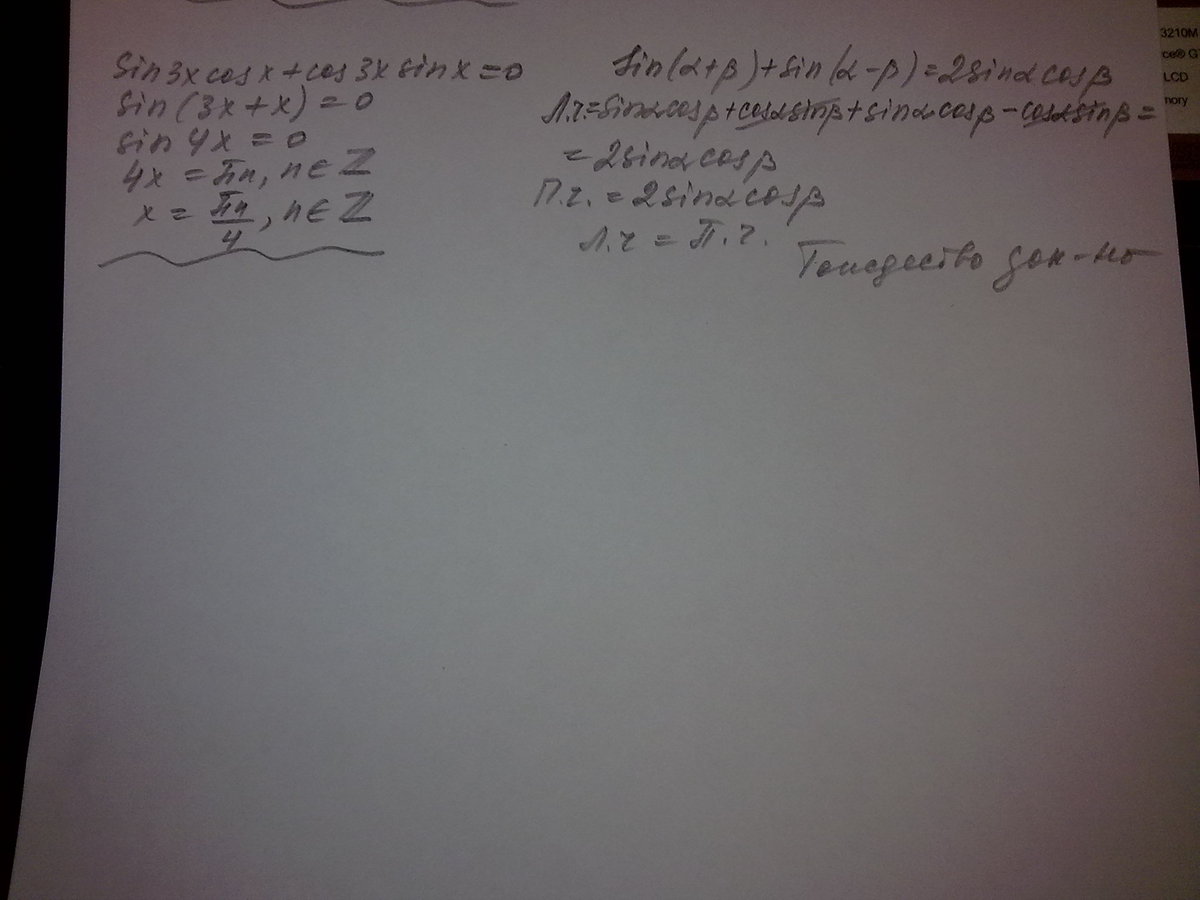 Sin3xcosx+cos3xsinx=0
sin(3x+x)=0
sin4x=0
4x=πn, n∈Z
x=πn/4, n∈Z
Sin(α+β)+sin(α-β)=2sinαcosβ
Л.ч.=sinαcosβ+cosαsinβ+sinαcosβ-cosαsinβ=
=2sinαcosβ
П.ч.=2sinαcosβ
Л.ч=П.ч.
Тождество док-но
3210M
rce® G
LCD
mory